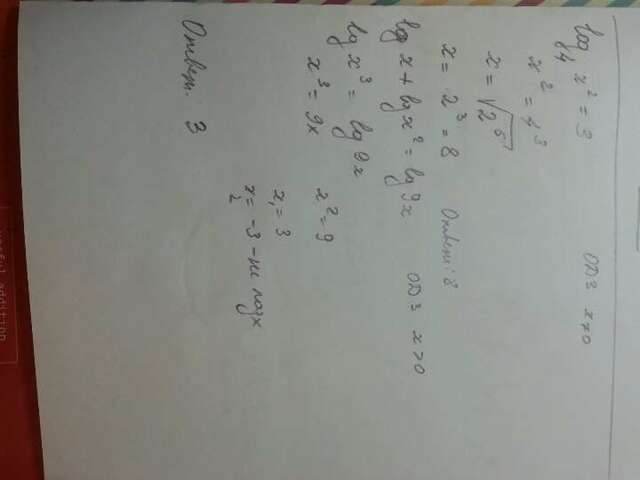 log₄ x² = 3 ОДЗ x≠0
x² = 4³
x = √2⁶
x = 2³ = 8 Ответ: 8
lg x + lg x² = lg 9x ОДЗ x > 0
lg x³ = lg 9x
x³ = 9x x² = 9
x₁ = 3
x₂ = -3 - не подх
Ответ: 3